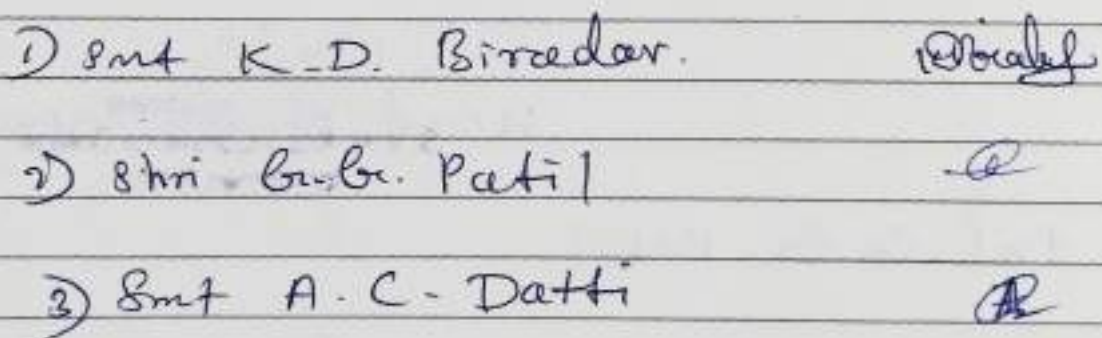 1) Smt K.D. Biradar.
2) Shri G.G. Patil
3) Smt A.C. Datti